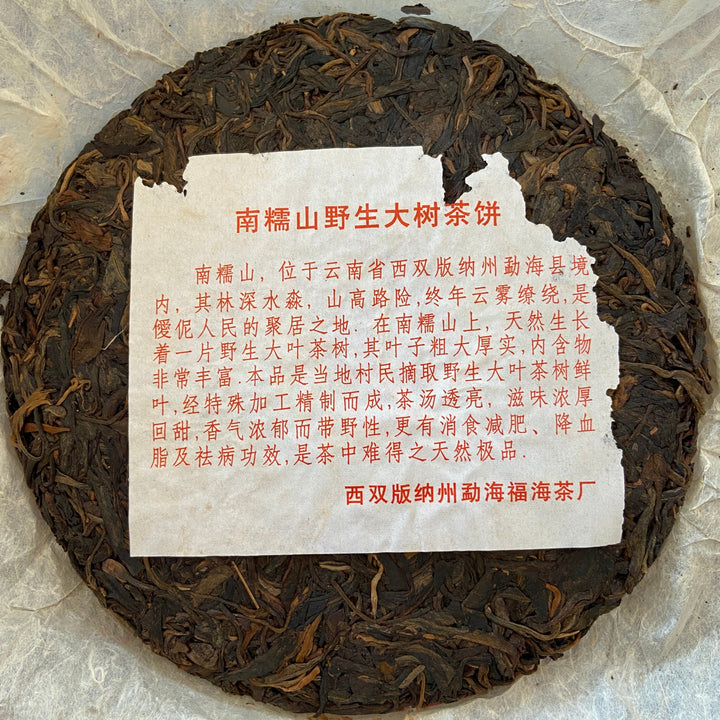 南糯山野生大树茶饼
南糯山, 位于云南省西双版纳州勐海县境
内, 其林深水淼, 山高路险, 终年云雾缭绕, 是
僾伲人民的聚居之地. 在南糯山上, 天然生长
着一片野生大叶茶树, 其叶子粗大厚实, 内含物
非常丰富. 本品是当地村民摘取野生大叶茶树鲜
叶, 经特殊加工精制而成, 茶汤透亮, 滋味浓厚
回甜, 香气浓郁而带野性, 更有消食减肥、降血
脂及祛病功效, 是茶中难得之天然极品.
西双版纳州勐海福海茶厂